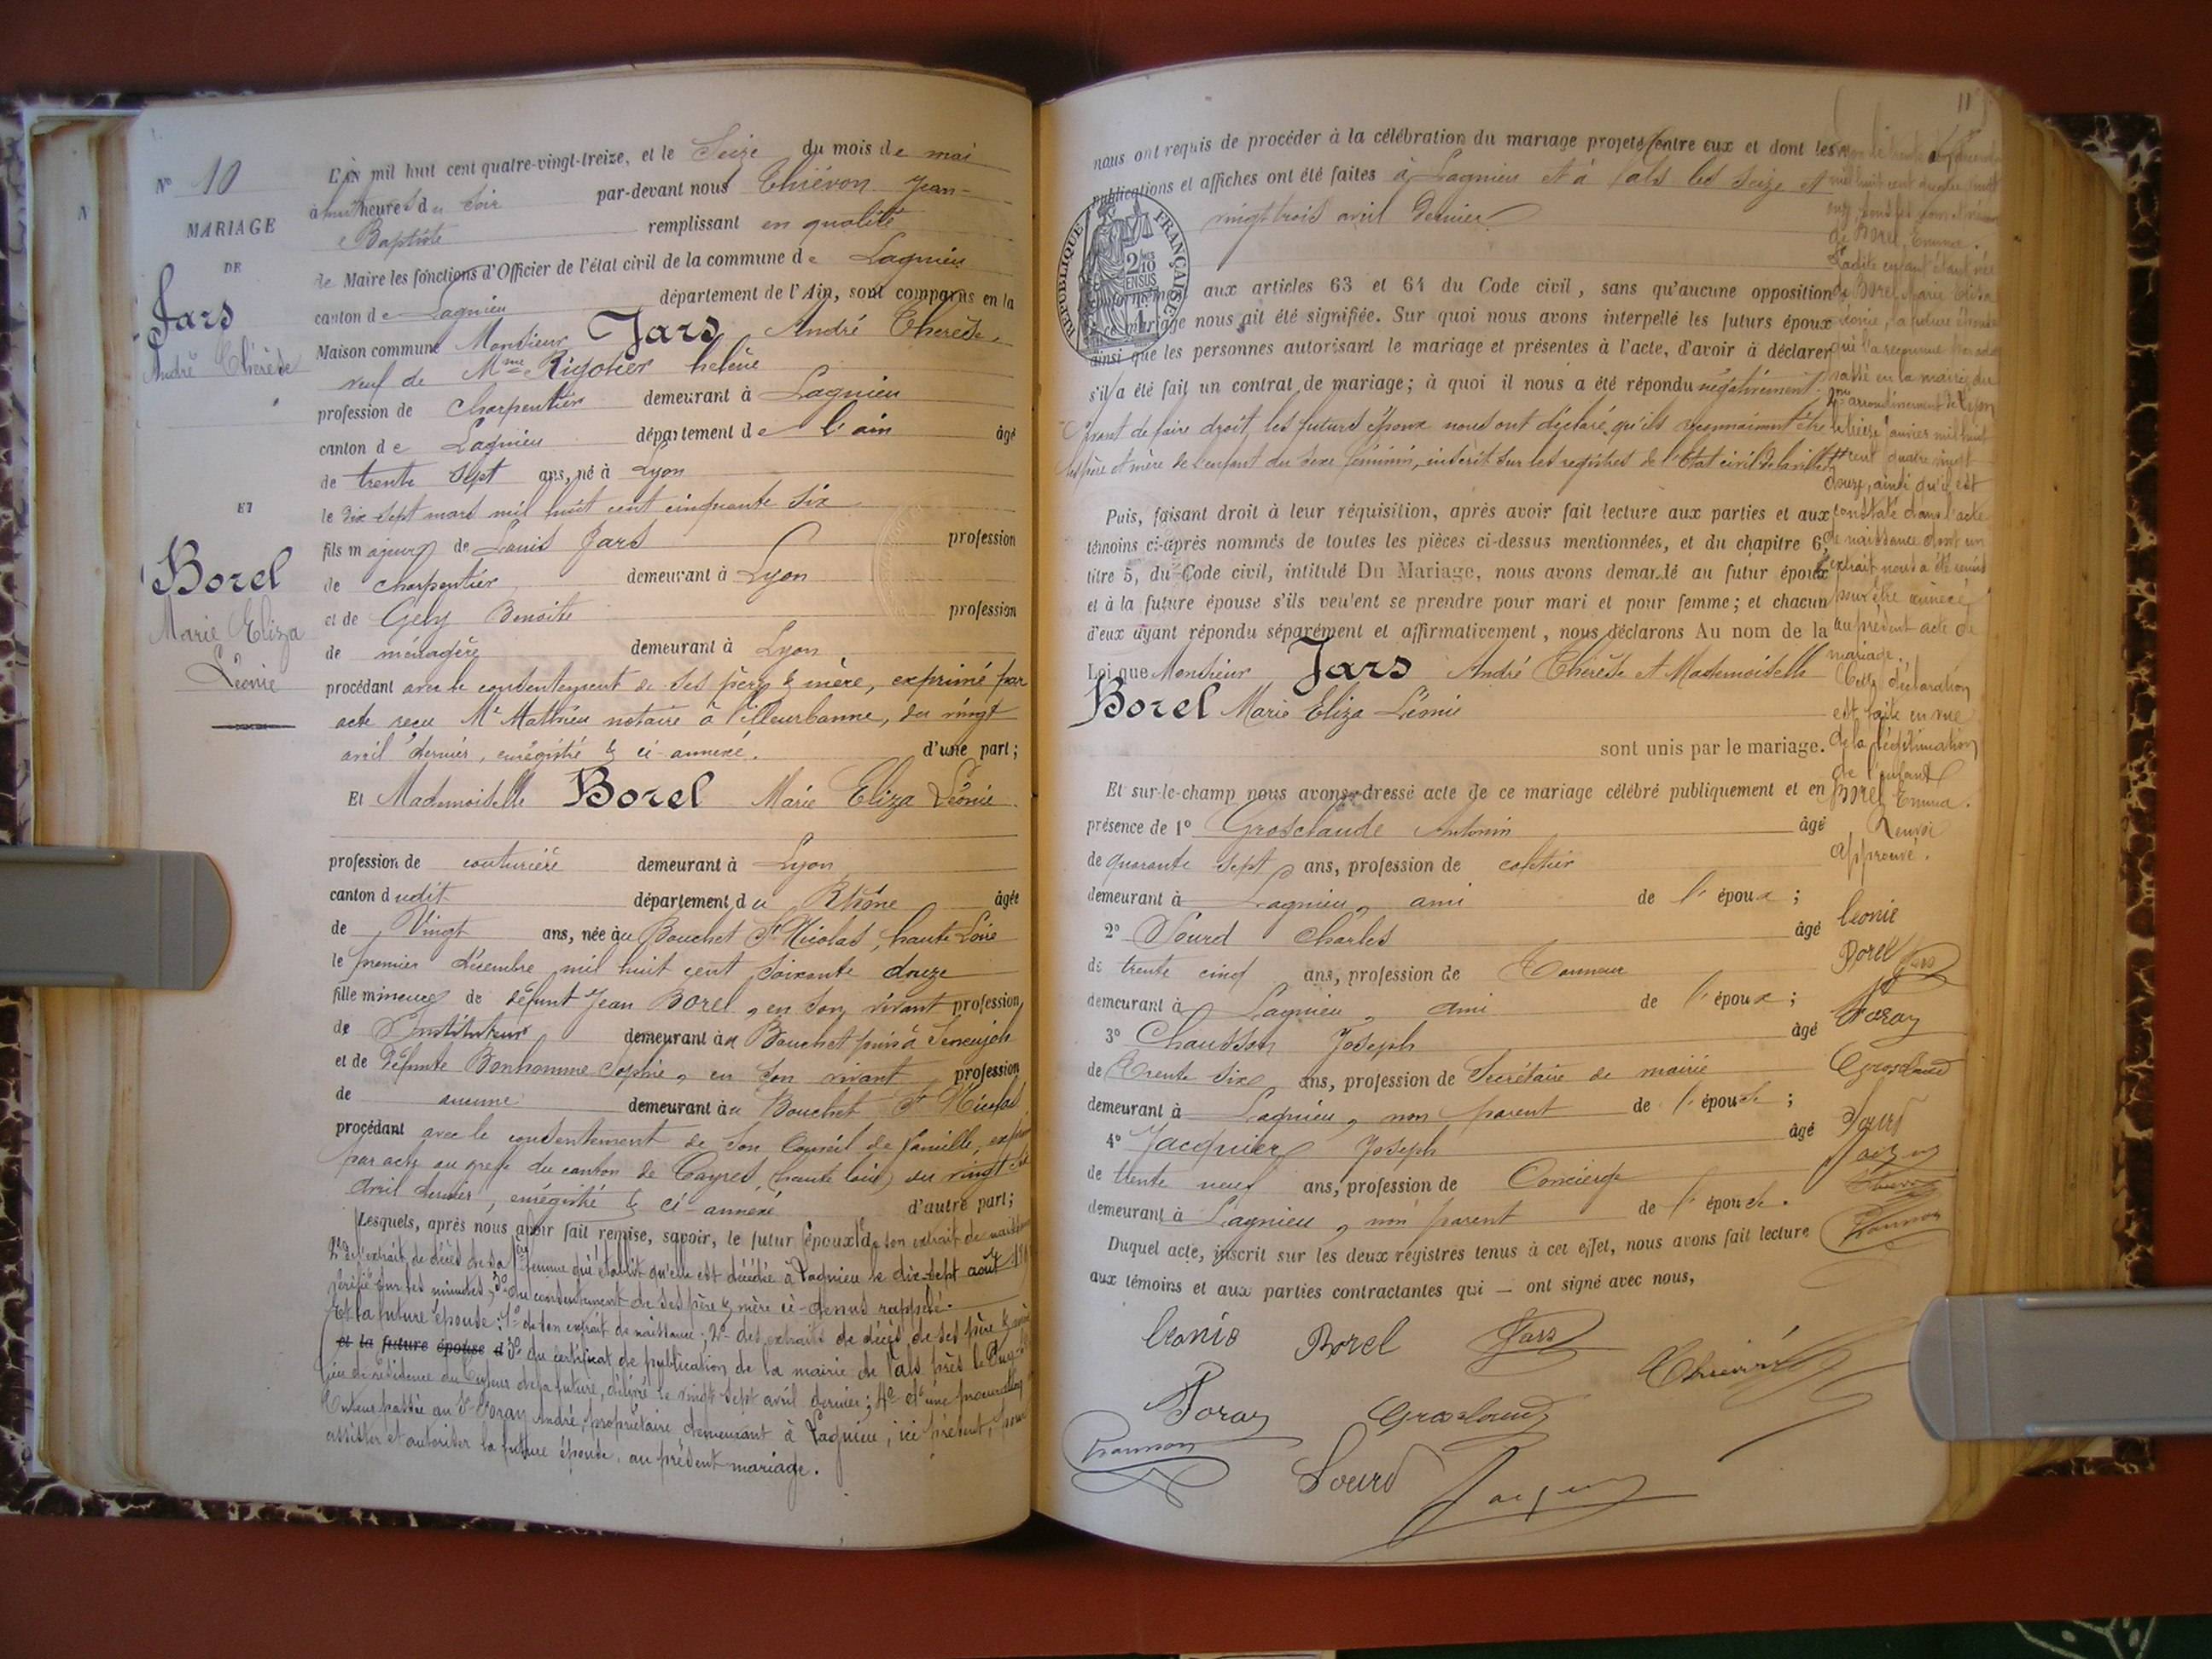 N° 10
MARIAGE
DE
Jars
André Thérèse
ET
Borel
Marie Eliza
Léonie
L'An mil huit cent quatre-vingt-treize, et le Seize du mois de mai
à huit heures du soir par-devant nous Thiévon Jean-
Baptiste remplissant en qualité
de Maire les fonctions d'Officier de l'état civil de la commune de Lagnieu
canton de Lagnieu département de l'Ain, sont comparus en la
Maison commune Monsieur Jars André Thérèse,
veuf de Mme Rigotier helène
profession de charpentier demeurant à Lagnieu
canton de Lagnieu département de l'ain âgé
de trente sept ans, né à Lyon
le dix sept mars mil huit cent cinquante six
fils majeur de Louis Jars profession
de charpentier demeurant à Lyon
et de Gély Benoite profession
de ménagère demeurant à Lyon
procédant avec le consentement de ses père & mère, exprimé par
acte reçu Me Mathieu notaire à Villeurbanne, du vingt
avril dernier, enrégistré & ci-annexé. d'une part;
Et Mademoiselle Borel Marie Eliza Léonie
profession de couturière demeurant à Lyon
canton dudit département du Rhône âgée
de Vingt ans, née au Bouchet St Nicolas, haute Loire
le premier décembre mil huit cent soixante douze
fille mineure de défunt Jean Borel, en son vivant profession
de Instituteur demeurant au Bouchet puis à Seneujols
et de défunte Bonhomme Sophie, en son vivant profession
de aucune demeurant au Bouchet St Nicolas
procédant avec le consentement de son Conseil de famille, exprimé
par acte au greffe du canton de Cayres (haute Loire) du vingt six
avril dernier, enrégistré & ci-annexé d'autre part;
Lesquels, après nous avoir fait remise, savoir, le futur époux 1° de son extrait de naissance
2° de l'extrait de décès de sa 1ère femme qui établit qu'elle est décédée à Lagnieu le dix-sept août
vérifié sur les minutes; 3° du consentement de ses père & mère ci-dessus rappelé.
Et la future épouse: 1° de son extrait de naissance; 2° des extraits de décès de ses père & mère
et la future épouse d 3° du certificat de publication de la mairie de Vals près le Puy
lieu de résidence du tuteur de la future, délivré le vingt-sept avril dernier; 4° d'une procuration
tuteur passée au Sr Foray André, propriétaire demeurant à Lagnieu, ici présent, pour
assister et autoriser la future épouse, au présent mariage.
11
nous ont requis de procéder à la célébration du mariage projeté entre eux et dont les
publications et affiches ont été faites à Lagnieu et à Vals les seize et
vingt trois avril dernier
RÉPUBLIQUE FRANÇAISE
2/10 EN SUS
conformément aux articles 63 et 64 du Code civil, sans qu'aucune opposition
à ce mariage nous ait été signifiée. Sur quoi nous avons interpellé les futurs époux
ainsi que les personnes autorisant le mariage et présentes à l'acte, d'avoir à déclarer
s'il a été fait un contrat de mariage; à quoi il nous a été répondu négativement.
Avant de faire droit, les futurs époux nous ont déclaré qu'ils reconnaissent être
les père et mère de l'enfant du sexe féminin, inscrit sur les registres de l'Etat civil de la ville de
Puis, faisant droit à leur réquisition, après avoir fait lecture aux parties et aux
témoins ci-après nommés de toutes les pièces ci-dessus mentionnées, et du chapitre 6,
titre 5, du Code civil, intitulé Du Mariage, nous avons demandé au futur époux
et à la future épouse s'ils veulent se prendre pour mari et pour femme; et chacun
d'eux ayant répondu séparément et affirmativement, nous déclarons Au nom de la
Loi que Monsieur Jars André Thérèse et Mademoiselle
Borel Marie Eliza Léonie
sont unis par le mariage.
Et sur-le-champ nous avons dressé acte de ce mariage célébré publiquement et en
présence de 1° Grosclaude Antonin âgé
de quarante sept ans, profession de cafetier
demeurant à Lagnieu, ami de l'époux;
2° Sourd Charles âgé
de trente cinq ans, profession de Tanneur
demeurant à Lagnieu, ami de l'époux;
3° Chausson Joseph âgé
de trente six ans, profession de Secrétaire de mairie
demeurant à Lagnieu, non parent de l'épouse;
4° Jacquier Joseph âgé
de trente neuf ans, profession de Concierge
demeurant à Lagnieu, non parent de l'épouse.
Duquel acte, inscrit sur les deux registres tenus à cet effet, nous avons fait lecture
aux témoins et aux parties contractantes qui — ont signé avec nous,
Léonie Borel Jars
Thiévon
Foray Grosclaude
Chausson
Sourd
Jacquier
mil huit cent quatre vingt
onze, sous les nom et prénom
de Borel, Emma.
Ladite enfant étant née
de Borel Marie Eliza
Léonie, la future épouse
qui l'a reconnue par acte
passé en la mairie du
2me arrondissement de Lyon
le treize janvier mil huit
cent quatre vingt
douze, ainsi qu'il est
constaté dans l'acte
de naissance dont un
extrait nous a été remis
pour être annexé
au présent acte de
mariage.
Cette déclaration
est faite en vue
de la légitimation
de l'enfant
Borel Emma.
Renvoi
approuvé.
Léonie
Borel Jars
Foray
Grosclaude
Sourd
Jacquier
Thiévon
Chausson